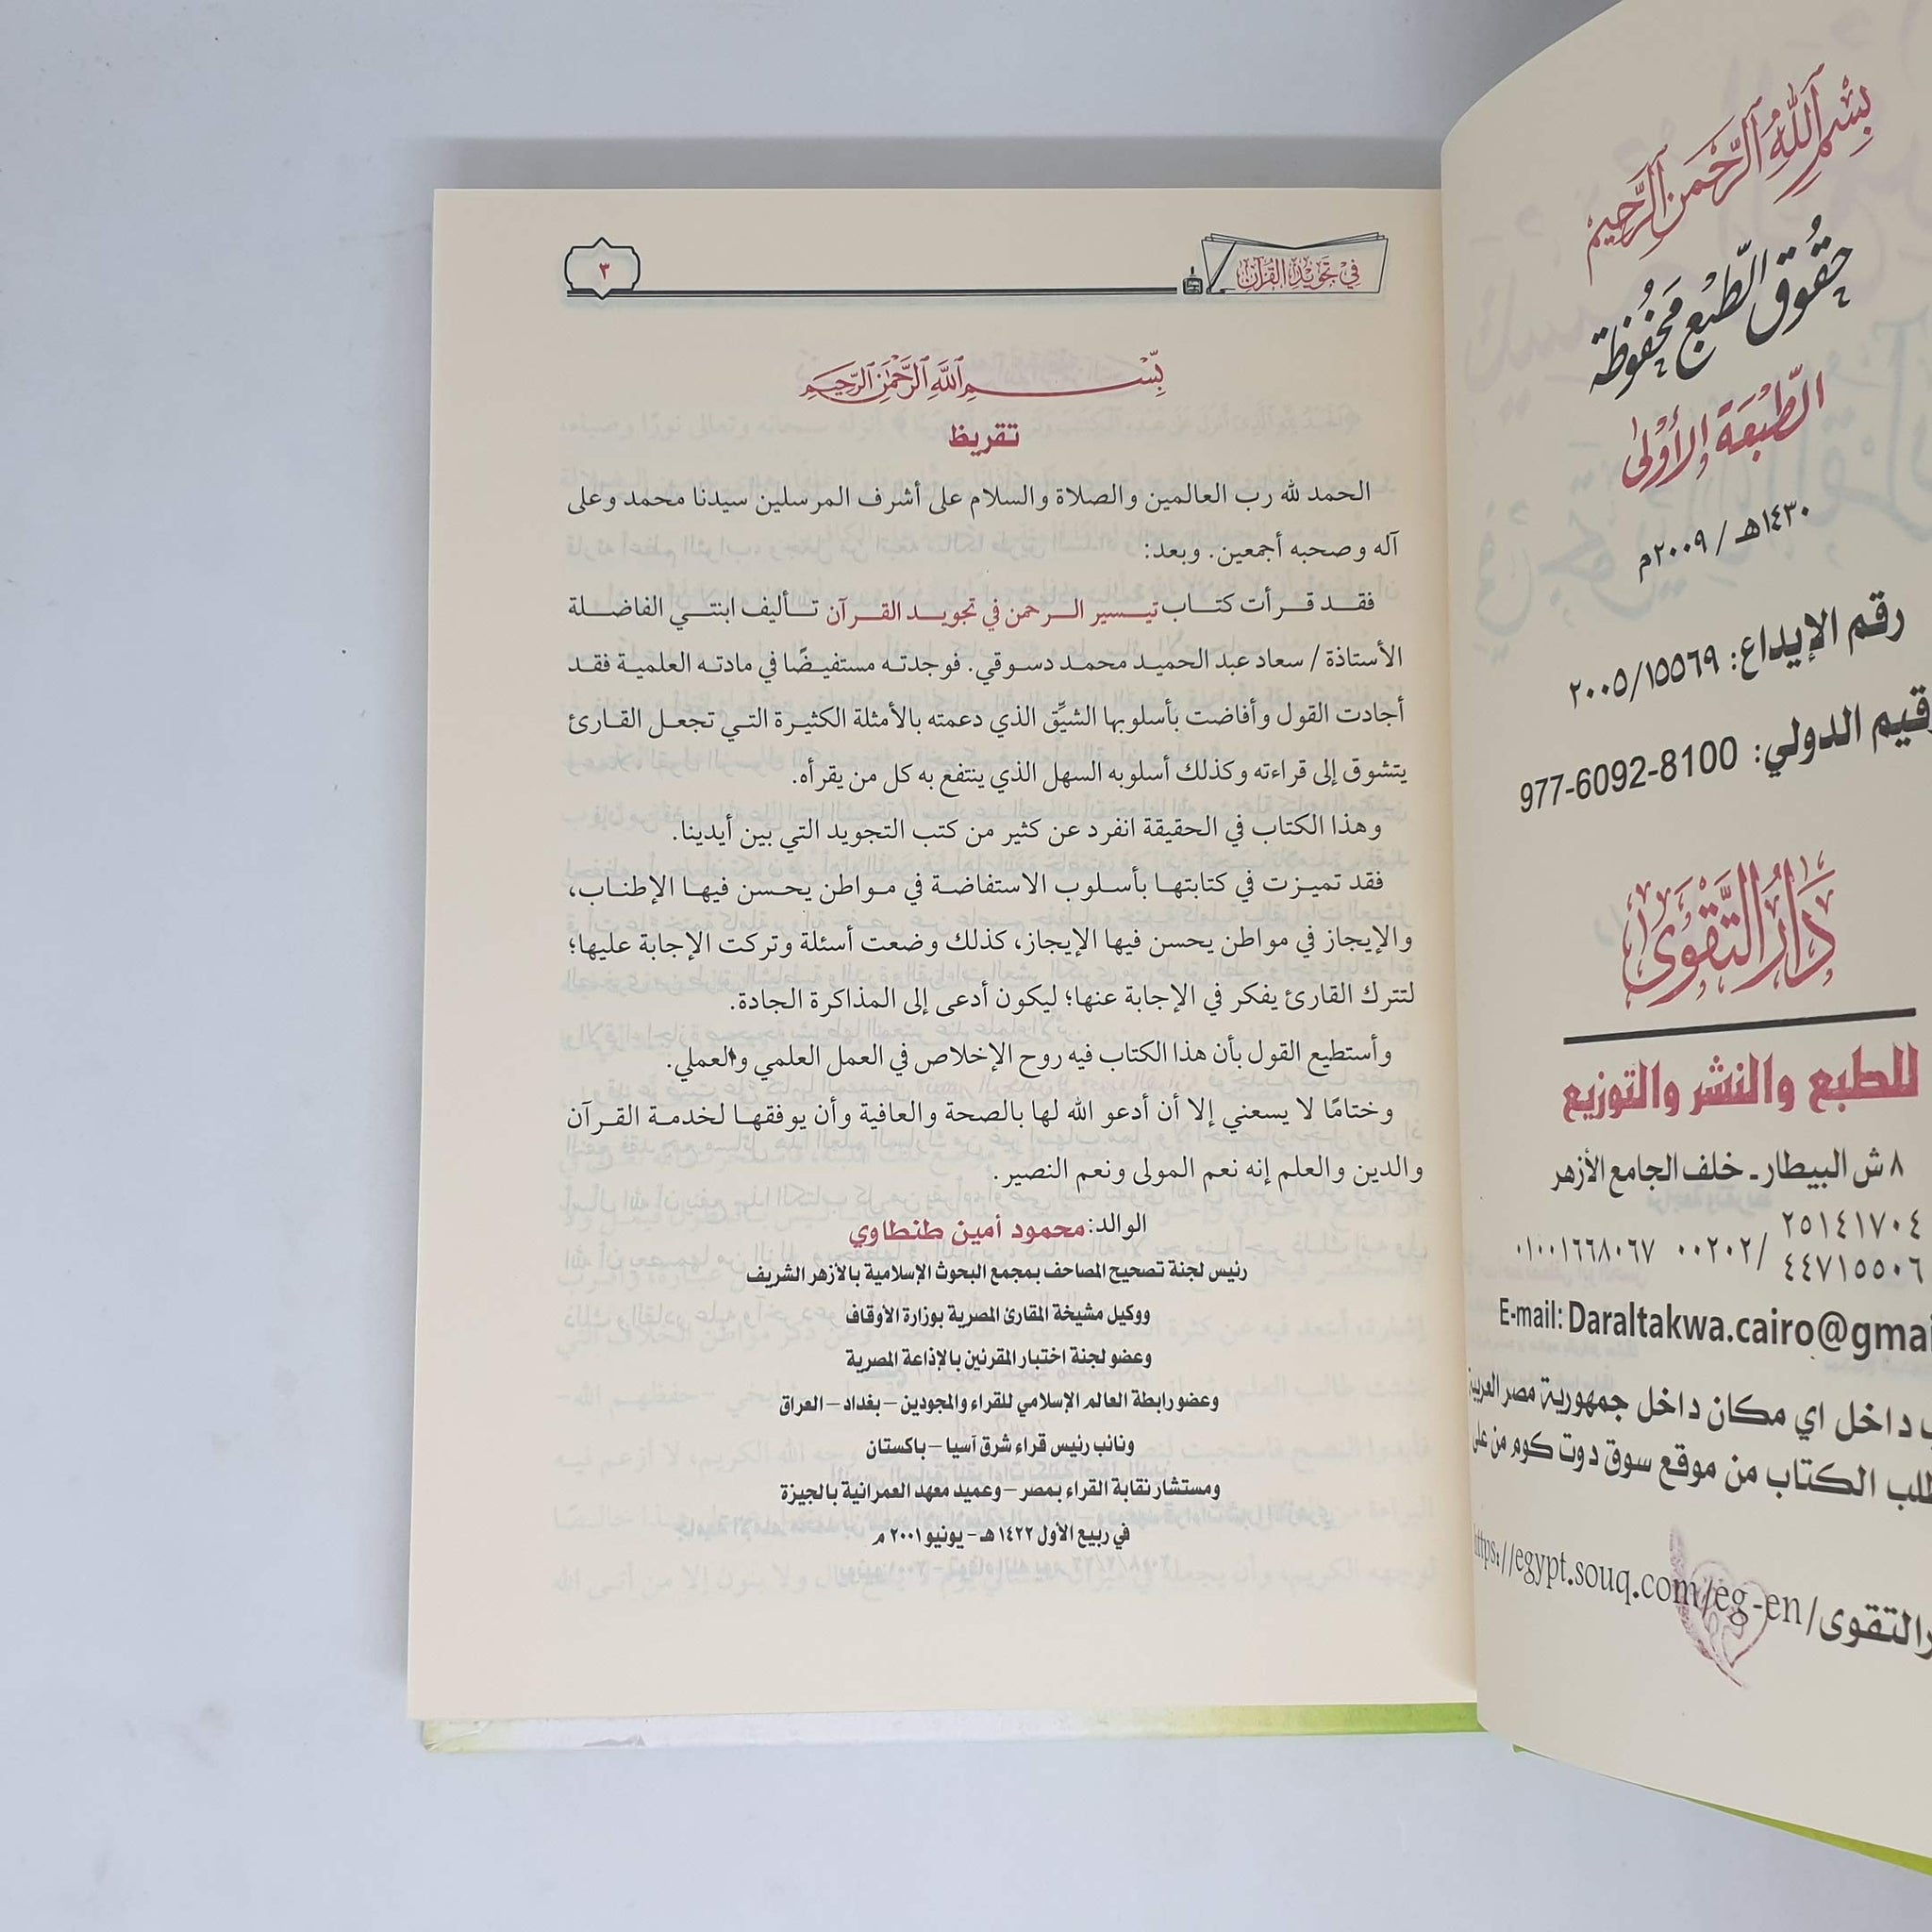 بسم الله الرحمن الرحيم
حقوق الطبع محفوظة
الطبعة الأولى
١٤٣٠هـ / ٢٠٠٩م
رقم الإيداع: ٢٠٠٥/١٥٥٦٩
الدولي: 977-6092-8100
دار التقوى
للطبع والنشر والتوزيع
٨ ش البيطار ـ خلف الجامع الأزهر
٢٥١٤١٧٠٤
٤٤٧١٥٥٠٦ /٠٠٢٠٢ ٠١٠٠١٦٦٨٠٦٧
E-mail: Daraltakwa.cairo@gmai
داخل اي مكان داخل جمهورية مصر العربية
الكتاب من موقع سوق دوت كوم من على
https://egypt.souq.com/eg-en/التقوى
في تجويد القرآن
٣
بسم الله الرحمن الرحيم
تقريظ
الحمد لله رب العالمين والصلاة والسلام على أشرف المرسلين سيدنا محمد وعلى
آله وصحبه أجمعين. وبعد:
فقد قرأت كتاب تيسير الرحمن في تجويد القرآن تأليف ابنتي الفاضلة
الأستاذة / سعاد عبد الحميد محمد دسوقي. فوجدته مستفيضًا في مادته العلمية فقد
أجادت القول وأفاضت بأسلوبها الشيِّق الذي دعمته بالأمثلة الكثيرة التي تجعل القارئ
يتشوق إلى قراءته وكذلك أسلوبه السهل الذي ينتفع به كل من يقرأه.
وهذا الكتاب في الحقيقة انفرد عن كثير من كتب التجويد التي بين أيدينا.
فقد تميزت في كتابتها بأسلوب الاستفاضة في مواطن يحسن فيها الإطناب،
والإيجاز في مواطن يحسن فيها الإيجاز، كذلك وضعت أسئلة وتركت الإجابة عليها؛
لتترك القارئ يفكر في الإجابة عنها؛ ليكون أدعى إلى المذاكرة الجادة.
وأستطيع القول بأن هذا الكتاب فيه روح الإخلاص في العمل العلمي والعملي.
وختامًا لا يسعني إلا أن أدعو الله لها بالصحة والعافية وأن يوفقها لخدمة القرآن
والدين والعلم إنه نعم المولى ونعم النصير.
الوالد: محمود أمين طنطاوي
رئيس لجنة تصحيح المصاحف بمجمع البحوث الإسلامية بالأزهر الشريف
ووكيل مشيخة المقارئ المصرية بوزارة الأوقاف
وعضو لجنة اختبار المقرئين بالإذاعة المصرية
وعضو رابطة العالم الإسلامي للقراء والمجودين – بغداد – العراق
ونائب رئيس قراء شرق آسيا – باكستان
ومستشار نقابة القراء بمصر – وعميد معهد العمرانية بالجيزة
في ربيع الأول ١٤٢٢ هـ - يونيو ٢٠٠١ م